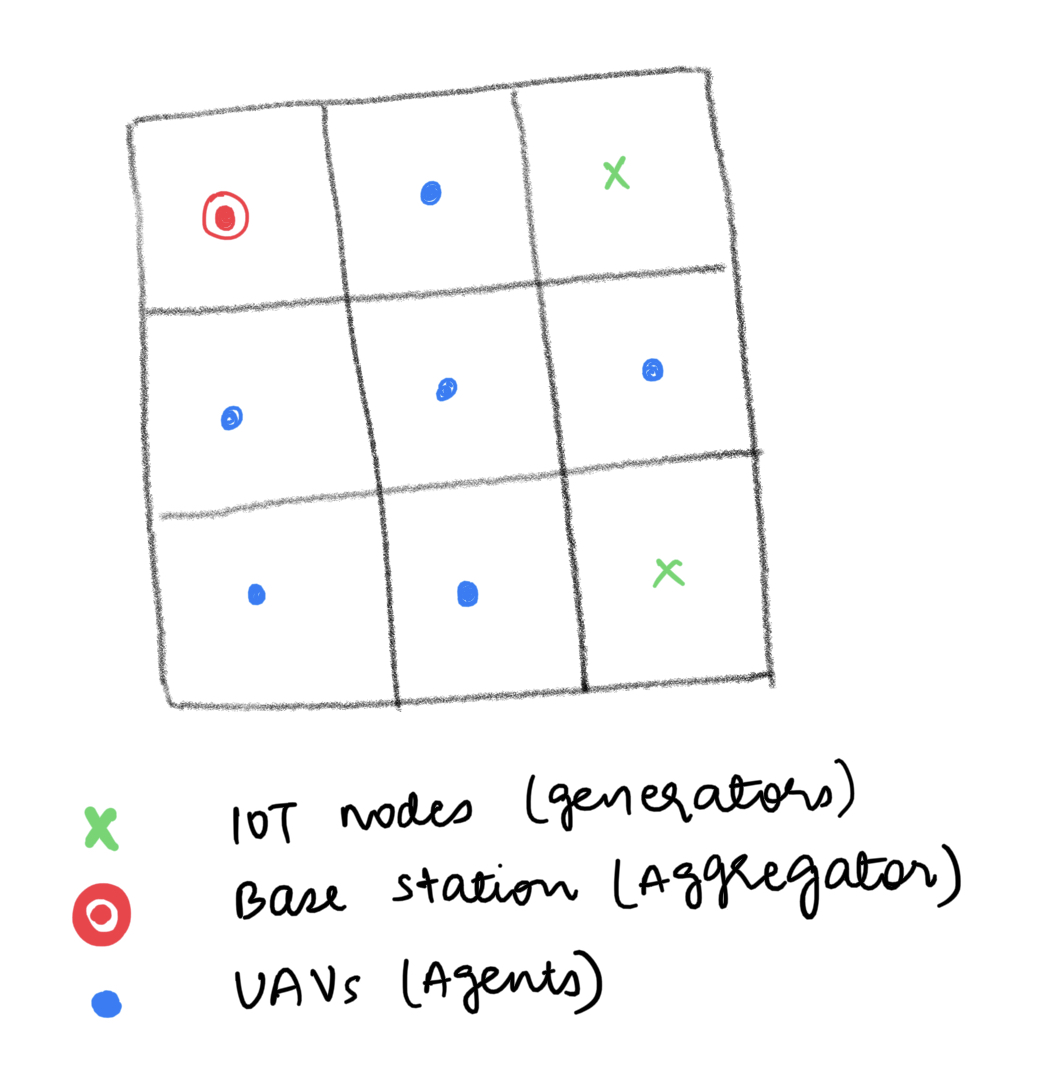 IOT nodes (generators)
Base station (Aggregator)
UAVs (Agents)